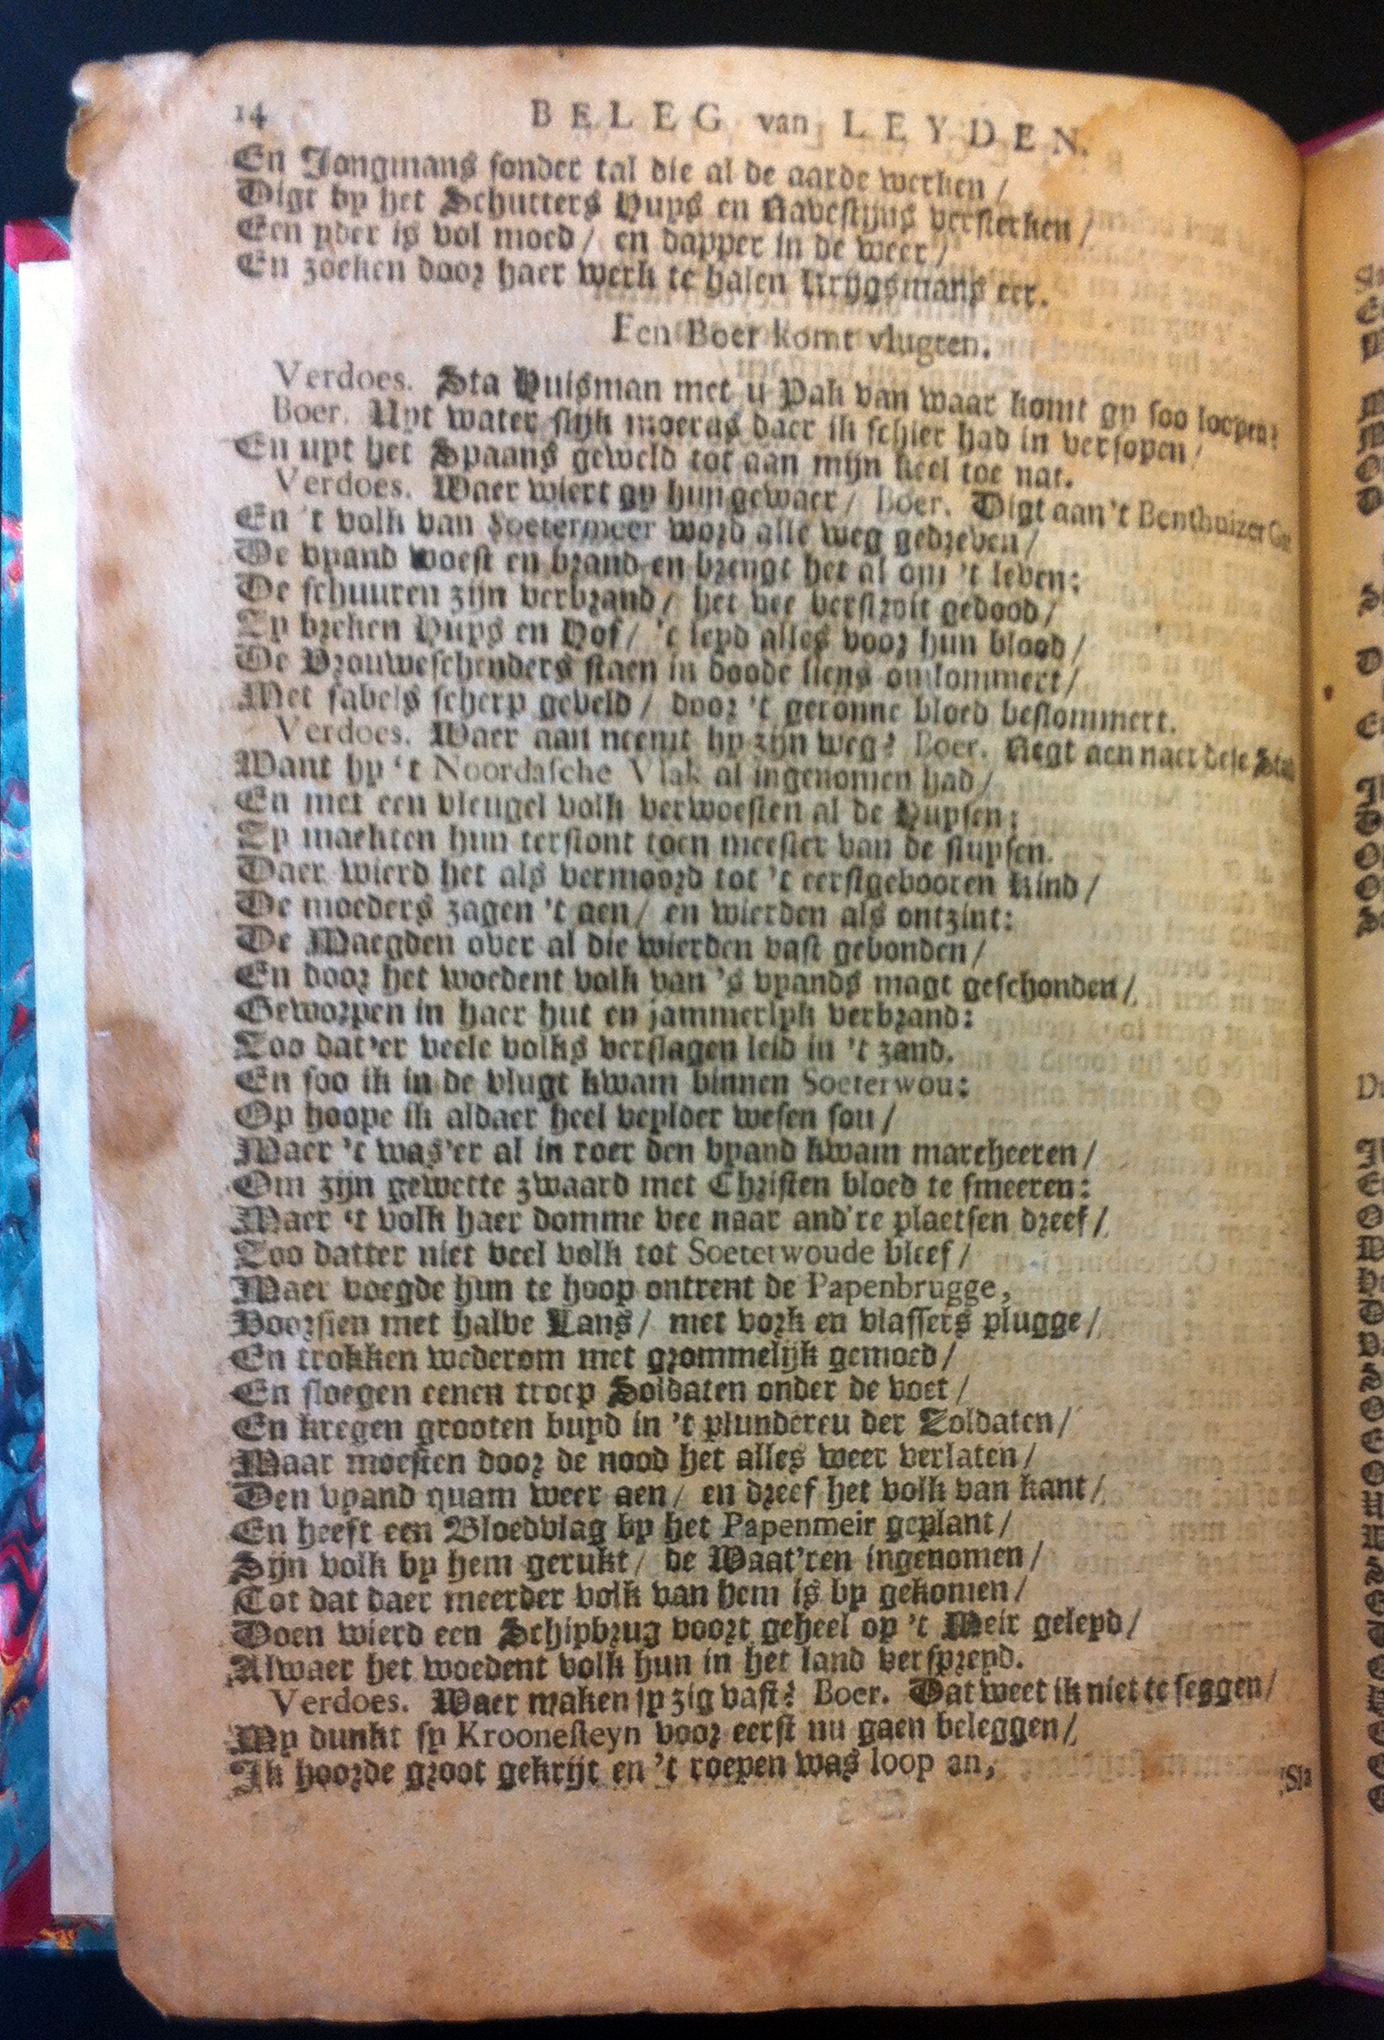 14 BELEG van LEYDEN.
En Jongmans sonder tal die al de aarde werken /
Digt by het Schutters Huys en Ravestijns versterken /
Een yder is vol moed / en dapper in de weer /
En zoeken door haer werk te halen Krijgsmans eer.
Een Boer komt vlugten.
Verdoes. Sta Huisman met u Pak van waar komt gy soo loopen?
Boer. Uyt water slijk moeras daer ik schier had in versopen /
En uyt het Spaans geweld tot aan mijn keel toe nat.
Verdoes. Waer wiert gy hun gewaer / Boer. Digt aan 't Benthuizer
En 't volk van Soetermeer word alle weg gedreven /
De vyand woest en brand en brengt het al om 't leven:
De schuuren zijn verbrand / het vee verstroit gedood /
Zy breken Huys en Hof / 't leyd alles voor hun blood /
De Vrouweschenders staen in doode liens omlommert /
Met sabels scherp geveld / door 't geronne bloed beslommert.
Verdoes. Waer aan neemt hy zijn weg? Boer. Regt aen naer dese Stad
Want hy 't Noordasche Vlak al ingenomen had /
En met een vleugel volk verwoesten al de Huysen;
Zy maekten hun terstont toen meester van de sluysen.
Daer wierd het als vermoord tot 't eerstgebooren Kind /
De moeders zagen 't aen / en wierden als ontzint:
De Maegden over al die wierden vast gebonden /
En door het woedent volk van 's vyands magt geschonden /
Geworpen in haer hut en jammerlyk verbrand:
Zoo dat'er veele volks verslagen leid in 't zand.
En soo ik in de vlugt kwam binnen Soeterwou:
Op hoope ik aldaer heel veylder wesen sou /
Maer 't was'er al in roer den vyand kwam marcheeren /
Om zijn gewette zwaard met Christen bloed te smeeren:
Maer 't volk haer domme vee naar and're plaetsen dreef /
Zoo datter niet veel volk tot Soeterwoude bleef /
Maer voegde hun te hoop ontrent de Papenbrugge,
Voorsien met halve Lans / met vork en vlassers plugge /
En trokken wederom met grommelijk gemoed /
En sloegen eenen troep Soldaten onder de voet /
En kregen grooten buyd in 't plundereu der Zoldaten /
Maar moesten door de nood het alles weer verlaten /
Den vyand quam weer aen / en dreef het volk van kant /
En heeft een Bloedvlag by het Papenmeir geplant /
Sijn volk by hem gerukt / de Waat'ren ingenomen /
Tot dat daer meerder volk van hem is by gekomen /
Doen wierd een Schipbrug voort geheel op 't Meir geleyd /
Alwaer het woedent volk hun in het land verspreyd.
Verdoes. Waer maken sy zig vast? Boer. Dat weet ik niet te seggen /
My dunkt sy Kroonesteyn voor eerst nu gaen beleggen /
Ik hoorde groot gekrijt en 't roepen was loop an,
Sla